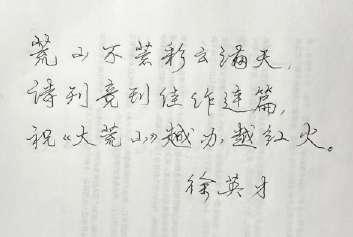 荒山不荒彩云满天，
诗刊竟刊佳作连篇，
祝《大荒山》越办越红火。
徐英才